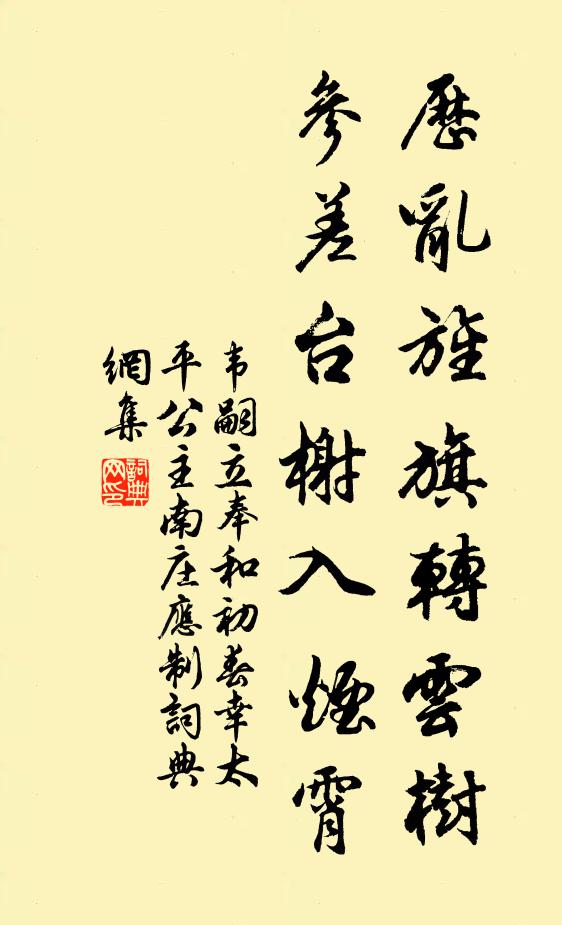 歷亂旌旗轉雲樹
參差台榭入煙霄
韦嗣立奉和初春幸太
平公主南庄應制詞典
網集
詞典
网印